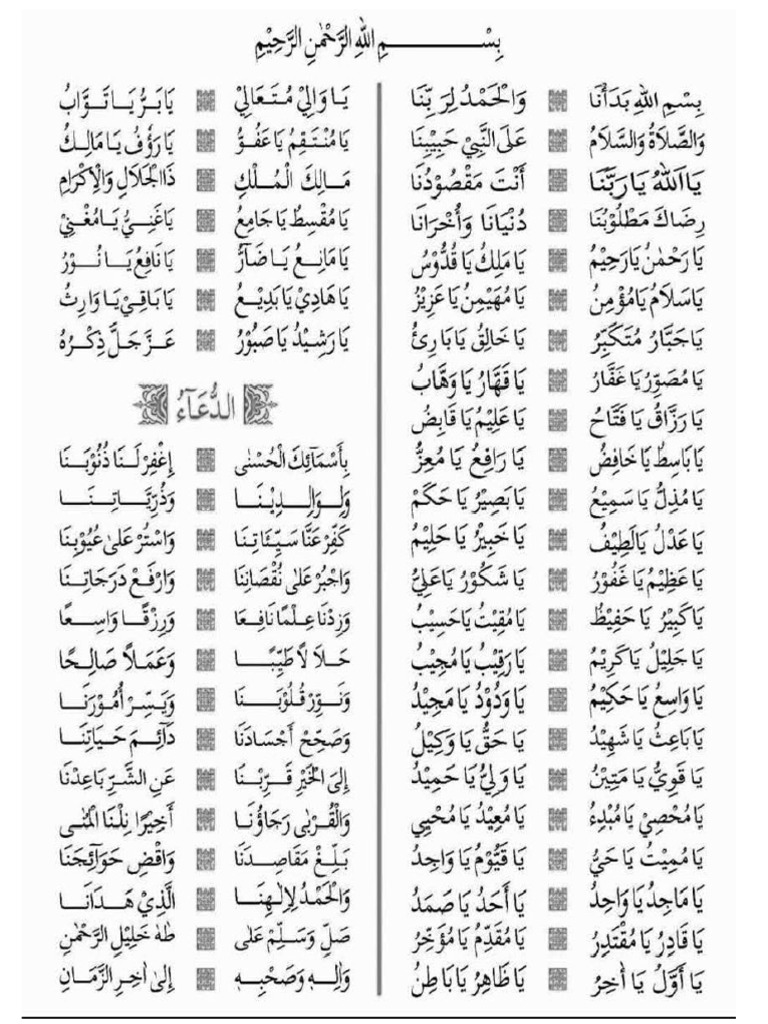 بِسْمِ اللهِ الرَّحْمٰنِ الرَّحِيْمِ
بِسْمِ اللهِ بَدَأْنَا وَالْحَمْدُ لِرَبِّنَا
وَالصَّلَاةُ وَالسَّلَامُ عَلَى النَّبِيْ حَبِيْبِنَا
يَا اَللهُ يَا رَبَّنَا أَنْتَ مَقْصُوْدُنَا
رِضَاكَ مَطْلُوْبُنَا دُنْيَانَا وَأُخْرَانَا
يَا رَحْمٰنُ يَا رَحِيْمُ يَا مَلِكُ يَا قُدُّوْسُ
يَا سَلَامُ يَا مُؤْمِنُ يَا مُهَيْمِنُ يَا عَزِيْزُ
يَا جَبَّارُ مُتَكَبِّرُ يَا خَالِقُ يَا بَارِئُ
يَا مُصَوِّرُ يَا غَفَّارُ يَا قَهَّارُ يَا وَهَّابُ
يَا رَزَّاقُ يَا فَتَّاحُ يَا عَلِيْمُ يَا قَابِضُ
يَا بَاسِطُ يَا خَافِضُ يَا رَافِعُ يَا مُعِزُّ
يَا مُذِلُّ يَا سَمِيْعُ يَا بَصِيْرُ يَا حَكَمْ
يَا عَدْلُ يَا لَطِيْفُ يَا خَبِيْرُ يَا حَلِيْمُ
يَا عَظِيْمُ يَا غَفُوْرُ يَا شَكُوْرُ يَا عَلِيُّ
يَا كَبِيْرُ يَا حَفِيْظُ يَا مُقِيْتُ يَا حَسِيْبُ
يَا جَلِيْلُ يَا كَرِيْمُ يَا رَقِيْبُ يَا مُجِيْبُ
يَا وَاسِعُ يَا حَكِيْمُ يَا وَدُوْدُ يَا مَجِيْدُ
يَا بَاعِثُ يَا شَهِيْدُ يَا حَقُّ يَا وَكِيْلُ
يَا قَوِيُّ يَا مَتِيْنُ يَا وَلِيُّ يَا حَمِيْدُ
يَا مُحْصِيْ يَا مُبْدِءُ يَا مُعِيْدُ يَا مُحْيِي
يَا مُمِيْتُ يَا حَيُّ يَا قَيُّوْمُ يَا وَاجِدُ
يَا مَاجِدُ يَا وَاحِدُ يَا أَحَدُ يَا صَمَدُ
يَا قَادِرُ يَا مُقْتَدِرُ يَا مُقَدِّمُ يَا مُؤَخِّرُ
يَا أَوَّلُ يَا أٰخِرُ يَا ظَاهِرُ يَا بَاطِنُ
يَا وَالِيْ مُتَعَالِيْ يَا بَرُّ يَا تَوَّابُ
يَا مُنْتَقِمُ يَا عَفُوُّ يَا رَؤُفُ يَا مَالِكُ
مَالِكَ الْمُلْكِ ذَا الْجَلَالِ وَالْإِكْرَامِ
يَا مُقْسِطُ يَا جَامِعُ يَا غَنِيُّ يَا مُغْنِيْ
يَا مَانِعُ يَا ضَآرُّ يَا نَافِعُ يَا نُوْرُ
يَا هَادِيْ يَا بَدِيْعُ يَا بَاقِيْ يَا وَارِثُ
يَا رَشِيْدُ يَا صَبُوْرُ عَزَّ جَلَّ ذِكْرُهُ
الدُّعَآءُ
بِأَسْمَآئِكَ الْحُسْنٰى إِغْفِرْ لَنَا ذُنُوْبَنَا
وَلِوَالِدِيْنَا وَذُرِّيَّاتِنَا
كَفِّرْ عَنَّا سَيِّئَاتِنَا وَاسْتُرْ عَلٰى عُيُوْبِنَا
وَاجْبُرْ عَلٰى نُقْصَانِنَا وَارْفَعْ دَرَجَاتِنَا
وَزِدْنَا عِلْمًا نَافِعًا وَرِزْقًا وَاسِعًا
حَلَالًا طَيِّبًا وَعَمَلًا صَالِحًا
وَنَوِّرْ قُلُوْبَنَا وَيَسِّرْ أُمُوْرَنَا
وَصَحِّحْ أَجْسَادَنَا دَآئِمَ حَيَاتِنَا
إِلَى الْخَيْرِ قَرِّبْنَا عَنِ الشَّرِّ بَاعِدْنَا
وَالْقُرْبٰى رَجَاؤُنَا أَخِيْرًا نِلْنَا الْمُنٰى
بَلِّغْ مَقَاصِدَنَا وَاقْضِ حَوَآئِجَنَا
وَالْحَمْدُ لِإِلٰهِنَا الَّذِيْ هَدَانَا
صَلِّ وَسَلِّمْ عَلٰى طٰهٰ خَلِيْلِ الرَّحْمٰنِ
وَاٰلِهٖ وَصَحْبِهٖ إِلٰى اٰخِرِ الزَّمَانِ